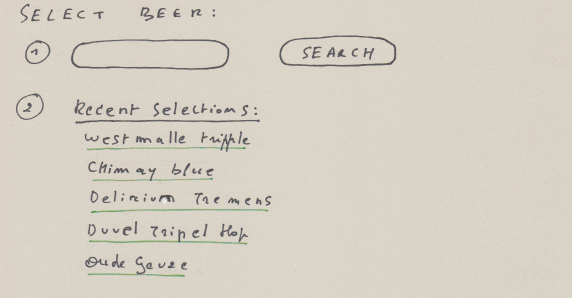 SELECT BEER:
1 SEARCH
2 Recent Selections:
Westmalle tripple
CHimay blue
Delirium Tremens
Duvel Tripel Hop
oude Geuze